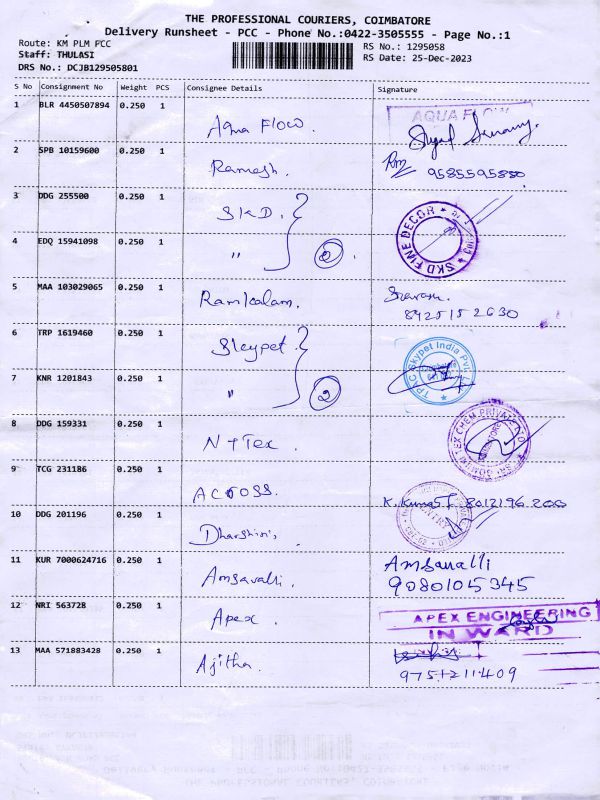 THE PROFESSIONAL COURIERS, COIMBATORE
Delivery Runsheet - PCC - Phone No.:0422-3505555 - Page No.:1
Route: KM PLM PCC RS No.: 1295058
Staff: THULASI RS Date: 25-Dec-2023
DRS No.: DCJB129505801
S No Consignment No Weight PCS Consignee Details Signature
1 BLR 4450507894 0.250 1 Aqua Flow. AQUA FLOW
2 SPB 10159600 0.250 1 Ramesh. 9585595880
3 DDG 255500 0.250 1 SKD. SKD FINE DECOR
4 EDQ 15941098 0.250 1 " 2
5 MAA 103029065 0.250 1 Ramkalam. 8925152630
6 TRP 1619460 0.250 1 Skypet. Skypet India Pvt. Ltd
7 KNR 1201843 0.250 1 " 2
8 DDG 159331 0.250 1 N + Tex. TEX CHEM PRIVATE
9 TCG 231186 0.250 1 Across. K. Kumar
10 DDG 201196 0.250 1 Dharshini.
11 KUR 7000624716 0.250 1 Amsavalli. Amsavalli
9080105345
12 NRI 563728 0.250 1 Apex. APEX ENGINEERING
IN WARD
13 MAA 571883428 0.250 1 Ajitha.
9751211409